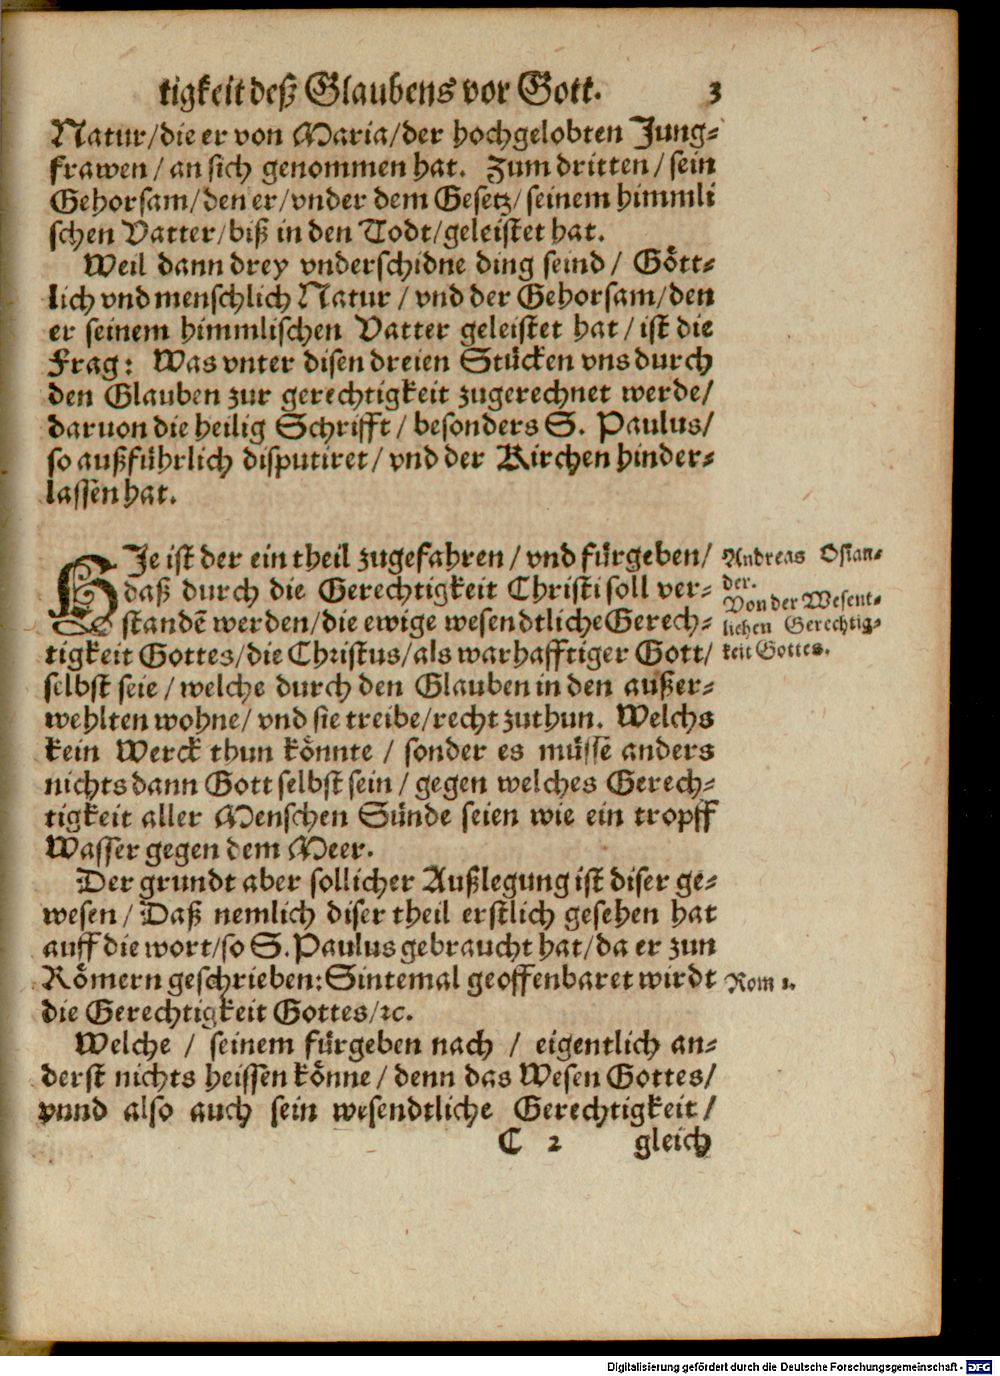 tigkeit deß Glaubens vor Gott. 3
Natur/die er von Maria/der hochgelobten Jung-
frawen / an sich genommen hat. Zum dritten / sein
Gehorsam/den er/vnder dem Gesetz/ seinem himmli
schen Vatter/biß in den Todt/geleistet hat.
Weil dann drey vnderschidne ding seind / Gött-
lich vnd menschlich Natur / vnd der Gehorsam/den
er seinem himmlischen Vatter geleistet hat / ist die
Frag: Was vnter disen dreien Stücken vns durch
den Glauben zur gerechtigkeit zugerechnet werde/
daruon die heilig Schrifft / besonders S. Paulus/
so außführlich disputiret/ vnd der Kirchen hinder-
lassen hat.
HIe ist der ein theil zugefahren / vnd fürgeben/
daß durch die Gerechtigkeit Christi soll ver-
standē werden/die ewige wesendtliche Gerech-
tigkeit Gottes/die Christus/als warhafftiger Gott/
selbst seie / welche durch den Glauben in den außer-
wehlten wohne/ vnd sie treibe/recht zuthun. Welchs
kein Werck thun könnte / sonder es müsse anders
nichts dann Gott selbst sein / gegen welches Gerech-
tigkeit aller Menschen Sünde seien wie ein tropff
Wasser gegen dem Meer.
Andreas Osian-
der.
Von der Wesent-
lichen Gerechtig-
keit Gottes.
Der grundt aber sollicher Außlegung ist diser ge-
wesen / Daß nemlich diser theil erstlich gesehen hat
auff die wort/so S. Paulus gebraucht hat/da er zun
Römern geschrieben: Sintemal geoffenbaret wirdt
die Gerechtigkeit Gottes/ꝛc.
Rom 1.
Welche / seinem fürgeben nach / eigentlich an-
derst nichts heissen könne / denn das Wesen Gottes/
vnnd also auch sein wesendtliche Gerechtigkeit /
C 2 gleich
Digitalisierung gefördert durch die Deutsche Forschungsgemeinschaft - DFG